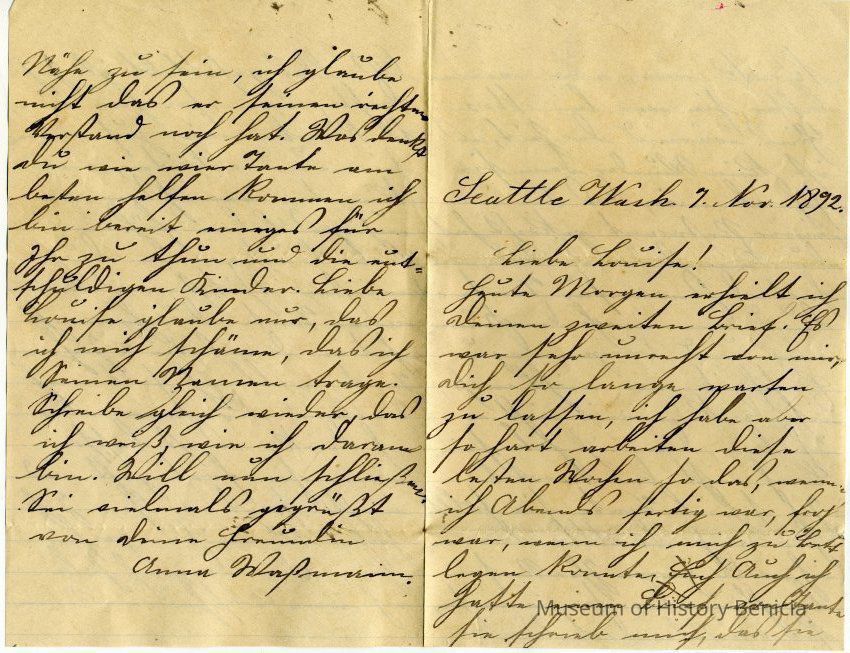 Seattle Wash. 7. Nov. 1892.
Liebe Louise!
Heute Morgen erhielt ich
Deinen zweiten Brief. Es
war sehr unrecht von mir,
Dich so lange warten
zu lassen, ich habe aber
so hart arbeiten diese
lesten Wochen so das, wenn
ich Abends fertig war, froh
war, wenn ich mich zu Bett
legen konnte. Auch ich
hatte Tante
sie schrieb mich, das sie
Nähe zu sein, ich glaube
nicht das er seinen rechten
Verstand noch hat. Was denkst
du wie wier Tante am
besten helfen kommen, ich
bin bereit einiges für
Ihr zu thun und die unt=
schuldigen Kinder. Liebe
Louise glaube nur, das
ich mich schäme, das ich
Seinen Namen trage.
Schreibe gleich wieder, das
ich weiß, wie ich daran
bin. Will nun schließen
Sei vielmals gegrüßt
von deine Freundin
Anna Waßmann.
Museum of History Benicia